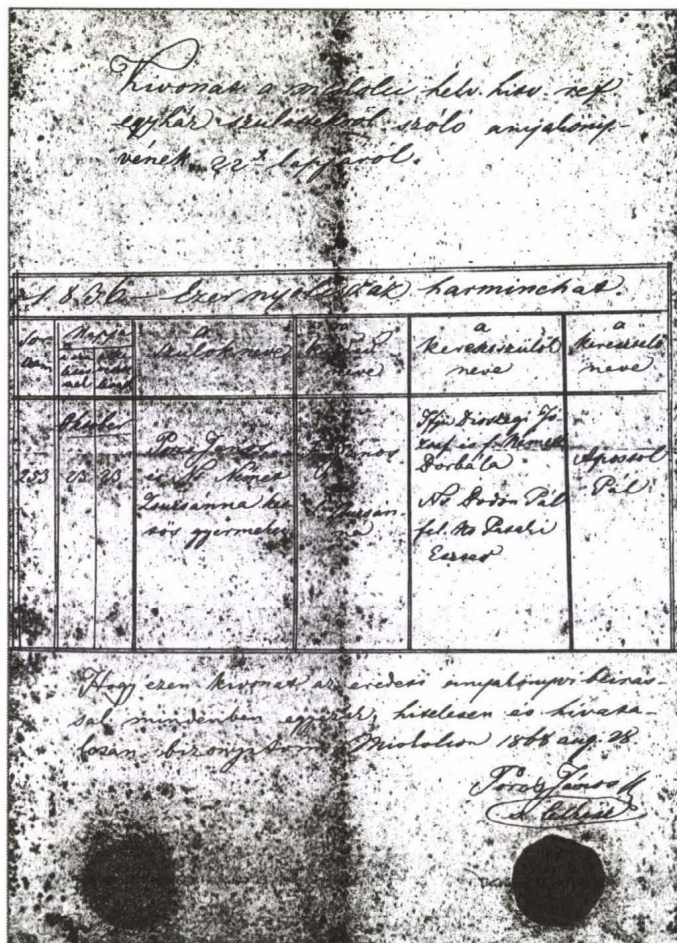 Kivonat a miskolci helv. hitv. ref.
egyház szülöttekről szóló anyakönyv-
vének 22k lapjáról.
1836 Ezer nyolcszák harminchat.
Sor
szám
Napja
a
szülők neve
a
neve
a
keresztszülők
neve
a
keresztelő
neve
Október
253
23
23
János
és N. Német
Zsuzsánna ket-
tős gyermekei
János
és
Zsuzsán-
na
Ifju Diószegi Jó-
zsef és f. Német
Borbála
Ns Dodon Pál
fel. Ns Pásztri
Eszter
Apostol
Pál
Hogy ezen kivonat az eredeti anyakönyvi beiras-
sal mindenben egyező, hitelesen és hivata-
losan bizonyítom Miskolcon 1868 aug. 28.
János
s. lelkész